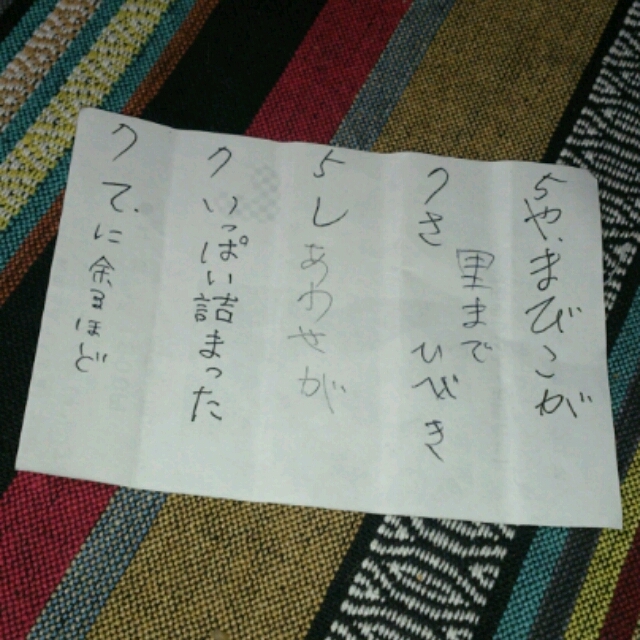 5やまびこが
7さ里までひびき
5しあわせが
7いっぱい詰まった
7てに余るほど